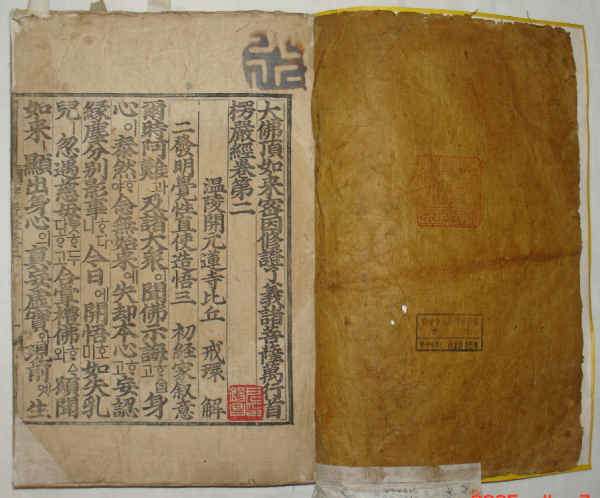 大佛頂如來密因修證了義諸菩薩萬行首
楞嚴經卷第二
溫陵開元蓮寺比丘 戒環 解
二發明覺性直使造悟三 初經家叙意
爾時阿難과及諸大衆이聞佛示誨고身
心이泰然ᄒᆞ야念無始來예失却本心ᄒᆞ고妄認
緣塵分別影事ᄒᆞ다니今日에開悟호미如失乳
兒ㅣ忽遇慈母ᄒᆞ다ᄒᆞ고合掌禮佛ᄒᆞ와願聞
如來ㅣ顯出身心의眞妄虛實와現前엣生